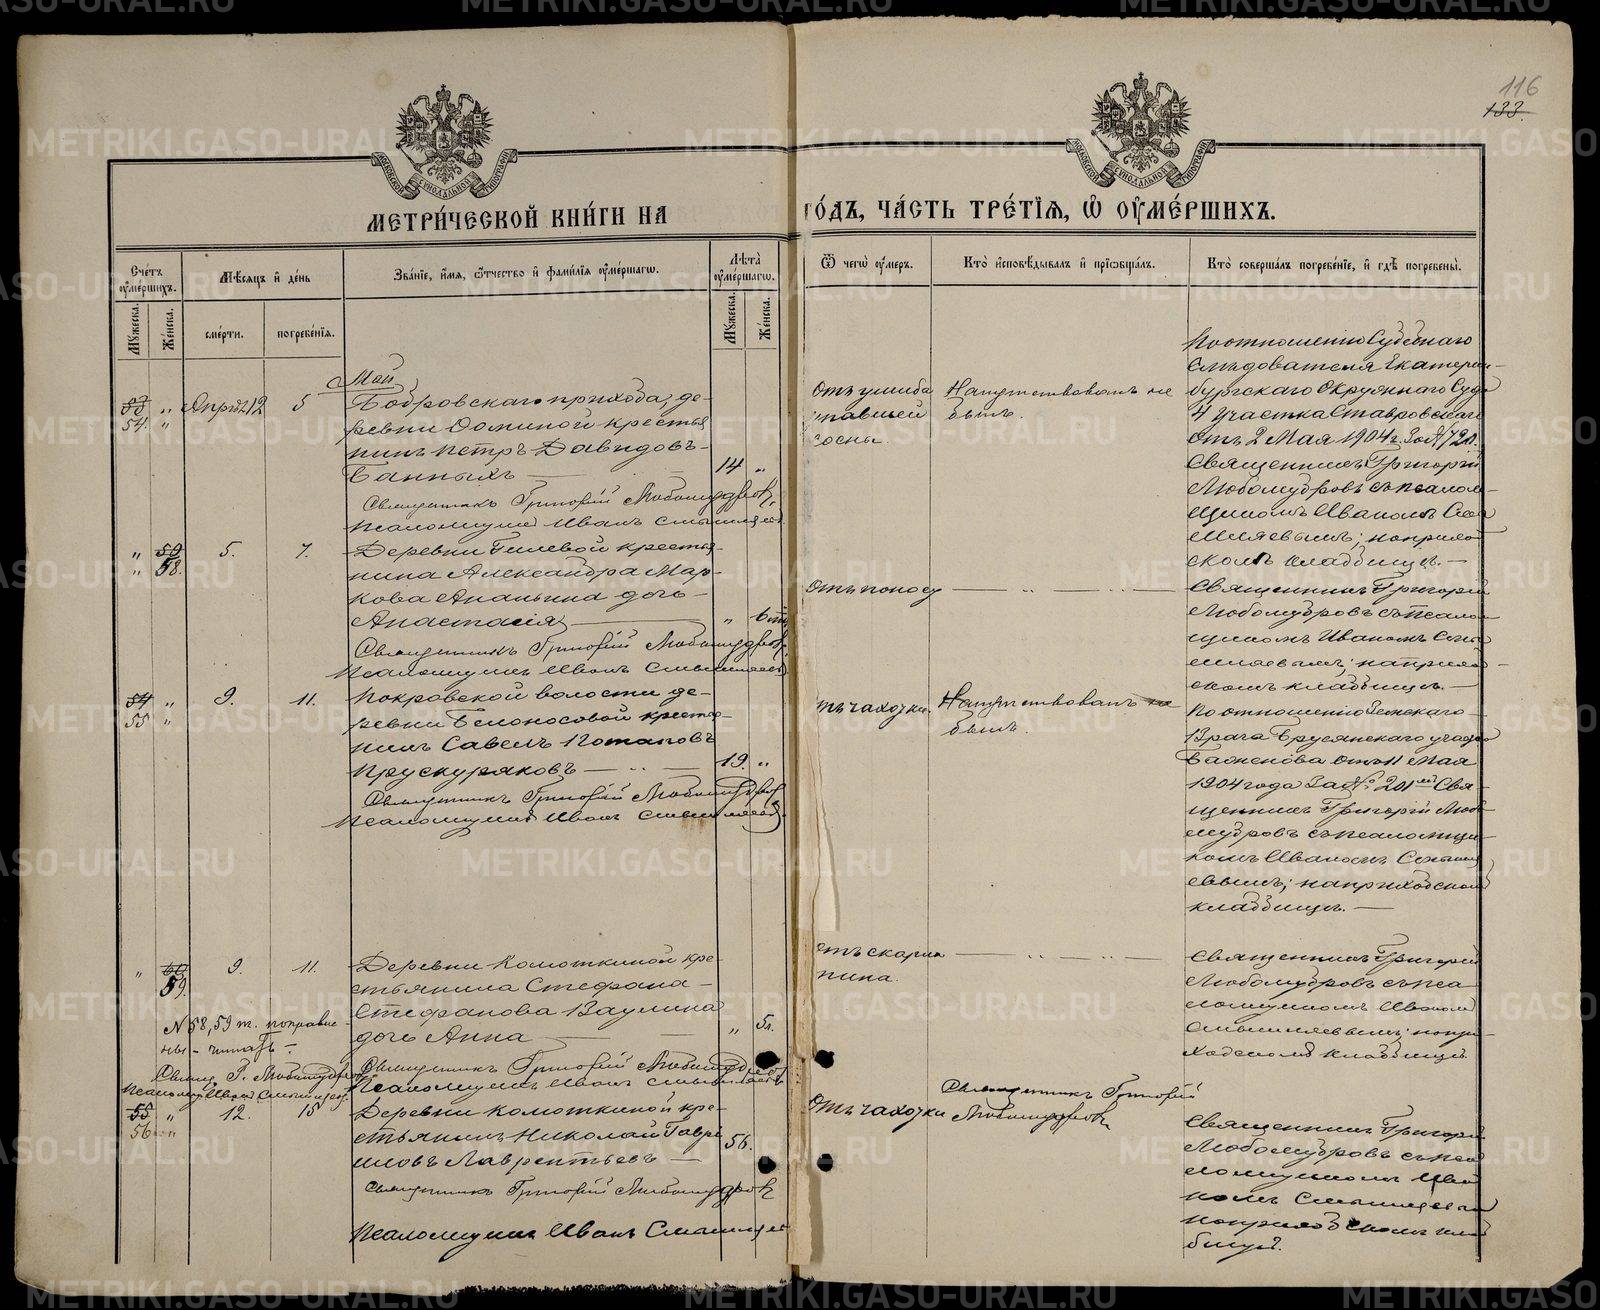 116
133.
МЕТРИ́ЧЕСКОЙ КНИ́ГИ НА ГО́ДЪ, ЧА́СТЬ ТРЕ́ТІѦ, Ѿ ОУМЕ́РШИХЪ.
Счетъ оумершихъ.
Мѣсяцъ и день
Званіе, имя, отчество и фамилія оумершагѡ.
Лѣта оумершагѡ.
Ѿ чегѡ оумеръ.
Кто исповѣдывалъ и пріобщалъ.
Кто совершалъ погребеніе, и гдѣ погребены.
Мужеска.
Женска.
смерти.
погребенія.
Мужеска.
Женска.
Май
54. " Апрѣль 12 5
Бобровскаго прихода, де-
ревни Фоминой крестья
нинъ Петръ Давидовъ
Банныхъ
14 "
Священникъ Григорій Любомудровъ,
Псаломщикъ Иванъ Смышляевъ.
отъ ушиба
павшей
сосны.
Напутствованъ не
былъ.
По отношенію Судебнаго
Слѣдователя Екатерин-
бургскаго Окружнаго Суда
4 участка Ставровскаго
отъ 2 Мая 1904 г. за № 720.
Священникъ Григорій
Любомудровъ съ псалом-
щикомъ Иваномъ Смы
шляевымъ; на приход
скомъ кладбищѣ.
" 59 5. 7.
" 58.
Деревни Гилевой крестья-
нина Александра Мар-
кова Ананьина дочь
Анастасія
" 6 м.
Священникъ Григорій Любомудровъ,
Псаломщикъ Иванъ Смышляевъ
отъ поносу
Священникъ Григорій
Любомудровъ съ псалом
щикомъ Иваномъ Смы
шляевымъ; на приход-
скомъ кладбищѣ.
54 " 9. 11.
55 "
Покровской волости де-
ревни Белоносовой крестья-
нинъ Савелъ Потаповъ
Прускуряковъ
19. "
Священникъ Григорій Любомудровъ
Псаломщикъ Иванъ Смышляевъ.
отъ чахотки.
Напутствованъ не
былъ.
По отношенію Земскаго
Врача Брусянскаго участка
Баженова отъ 11 Мая
1904 года за № 201 мъ Свя-
щенникъ Григорій Любо
мудровъ съ псаломщи-
комъ Иваномъ Смышля
евымъ; на приходскомъ
кладбищѣ.
" 60 9. 11.
59.
Деревни Колоткиной кре-
стьянина Стефана
Стефанова Ваулина
дочь Анна
" 5 л.
№ 58, 59 м. поправле-
ны - читать.
Священ. Г. Любомудровъ
Псаломщ. Иванъ Смышляевъ.
Священникъ Григорій Любомудровъ
Псаломщикъ Иванъ Смышляевъ
отъ скарла
тина.
Священникъ Григорій
Любомудровъ съ пса
ломщикомъ Иваномъ
Смышляевымъ; на при-
ходскомъ кладбищѣ
55 " 12. 15
56 "
Деревни Колоткиной кре-
стьянинъ Николай Гаврі
иловъ Лаврентьевъ
56.
Священникъ Григорій Любомудровъ
Псаломщикъ Иванъ Смышляевъ
отъ чахотки
Священникъ Григорій
Любомудровъ
Священникъ Григорій
Любомудровъ съ пса
ломщикомъ Ива
номъ Смышляевымъ
на приходскомъ клад
бищѣ.
METRIKI.GASO-URAL.RU